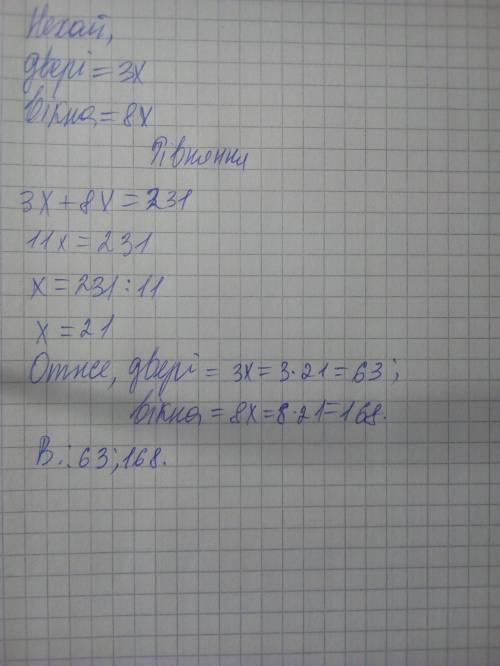 Нехай,
двері = 3х
вікна = 8х
Рівняння
3х + 8х = 231
11х = 231
х = 231 : 11
х = 21
Отже, двері = 3х = 3·21 = 63;
вікна = 8х = 8·21 = 168.
В.: 63; 168.